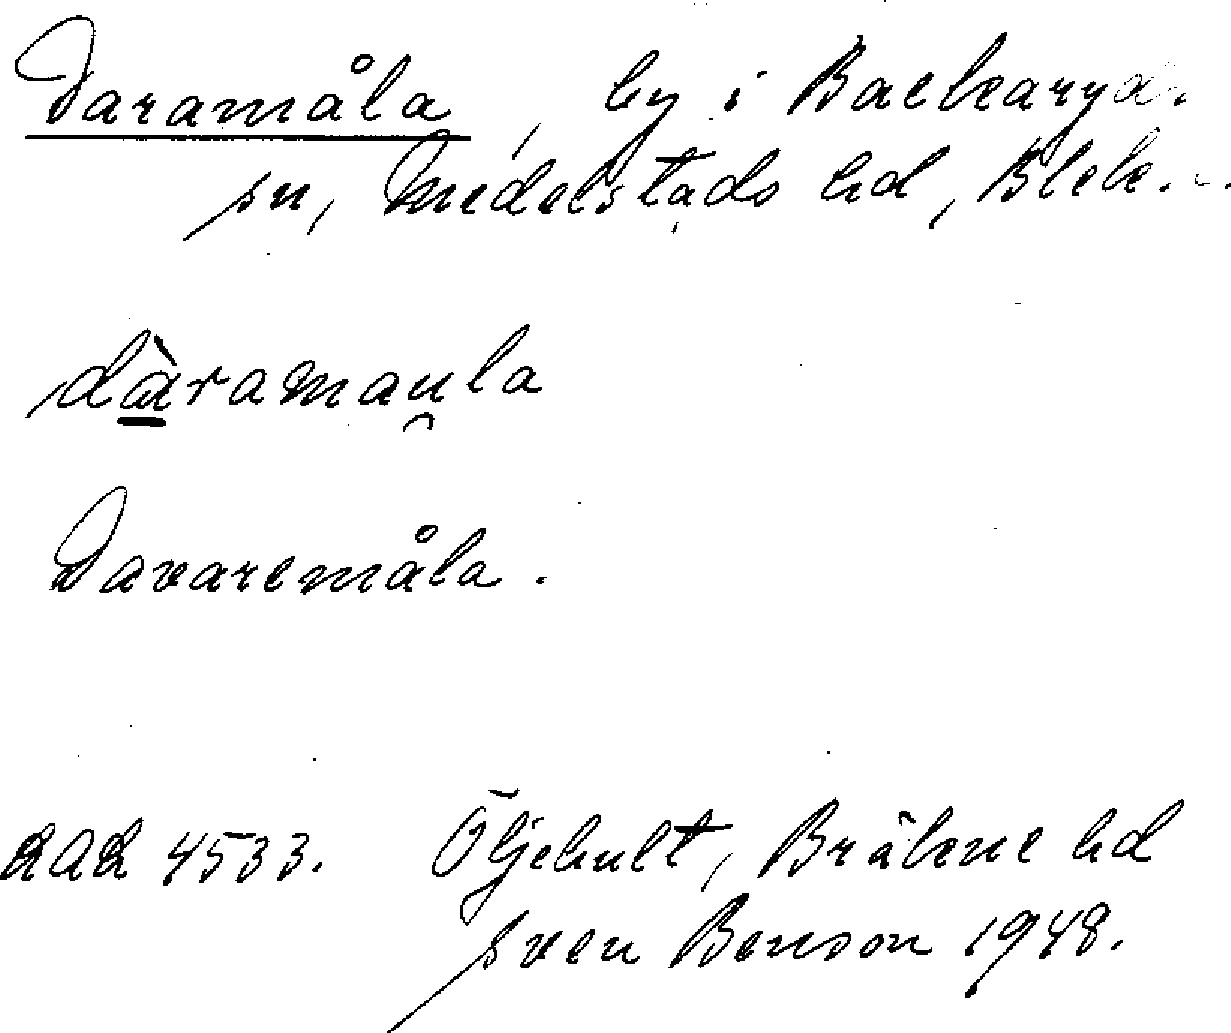 Daramåla, by i Backaryds
sn, Medelstads hd, Blek.
dàramau̯la
Davaremåla.
LAL 4533. Öljehult, Bräkne hd
Sven Benson 1948.